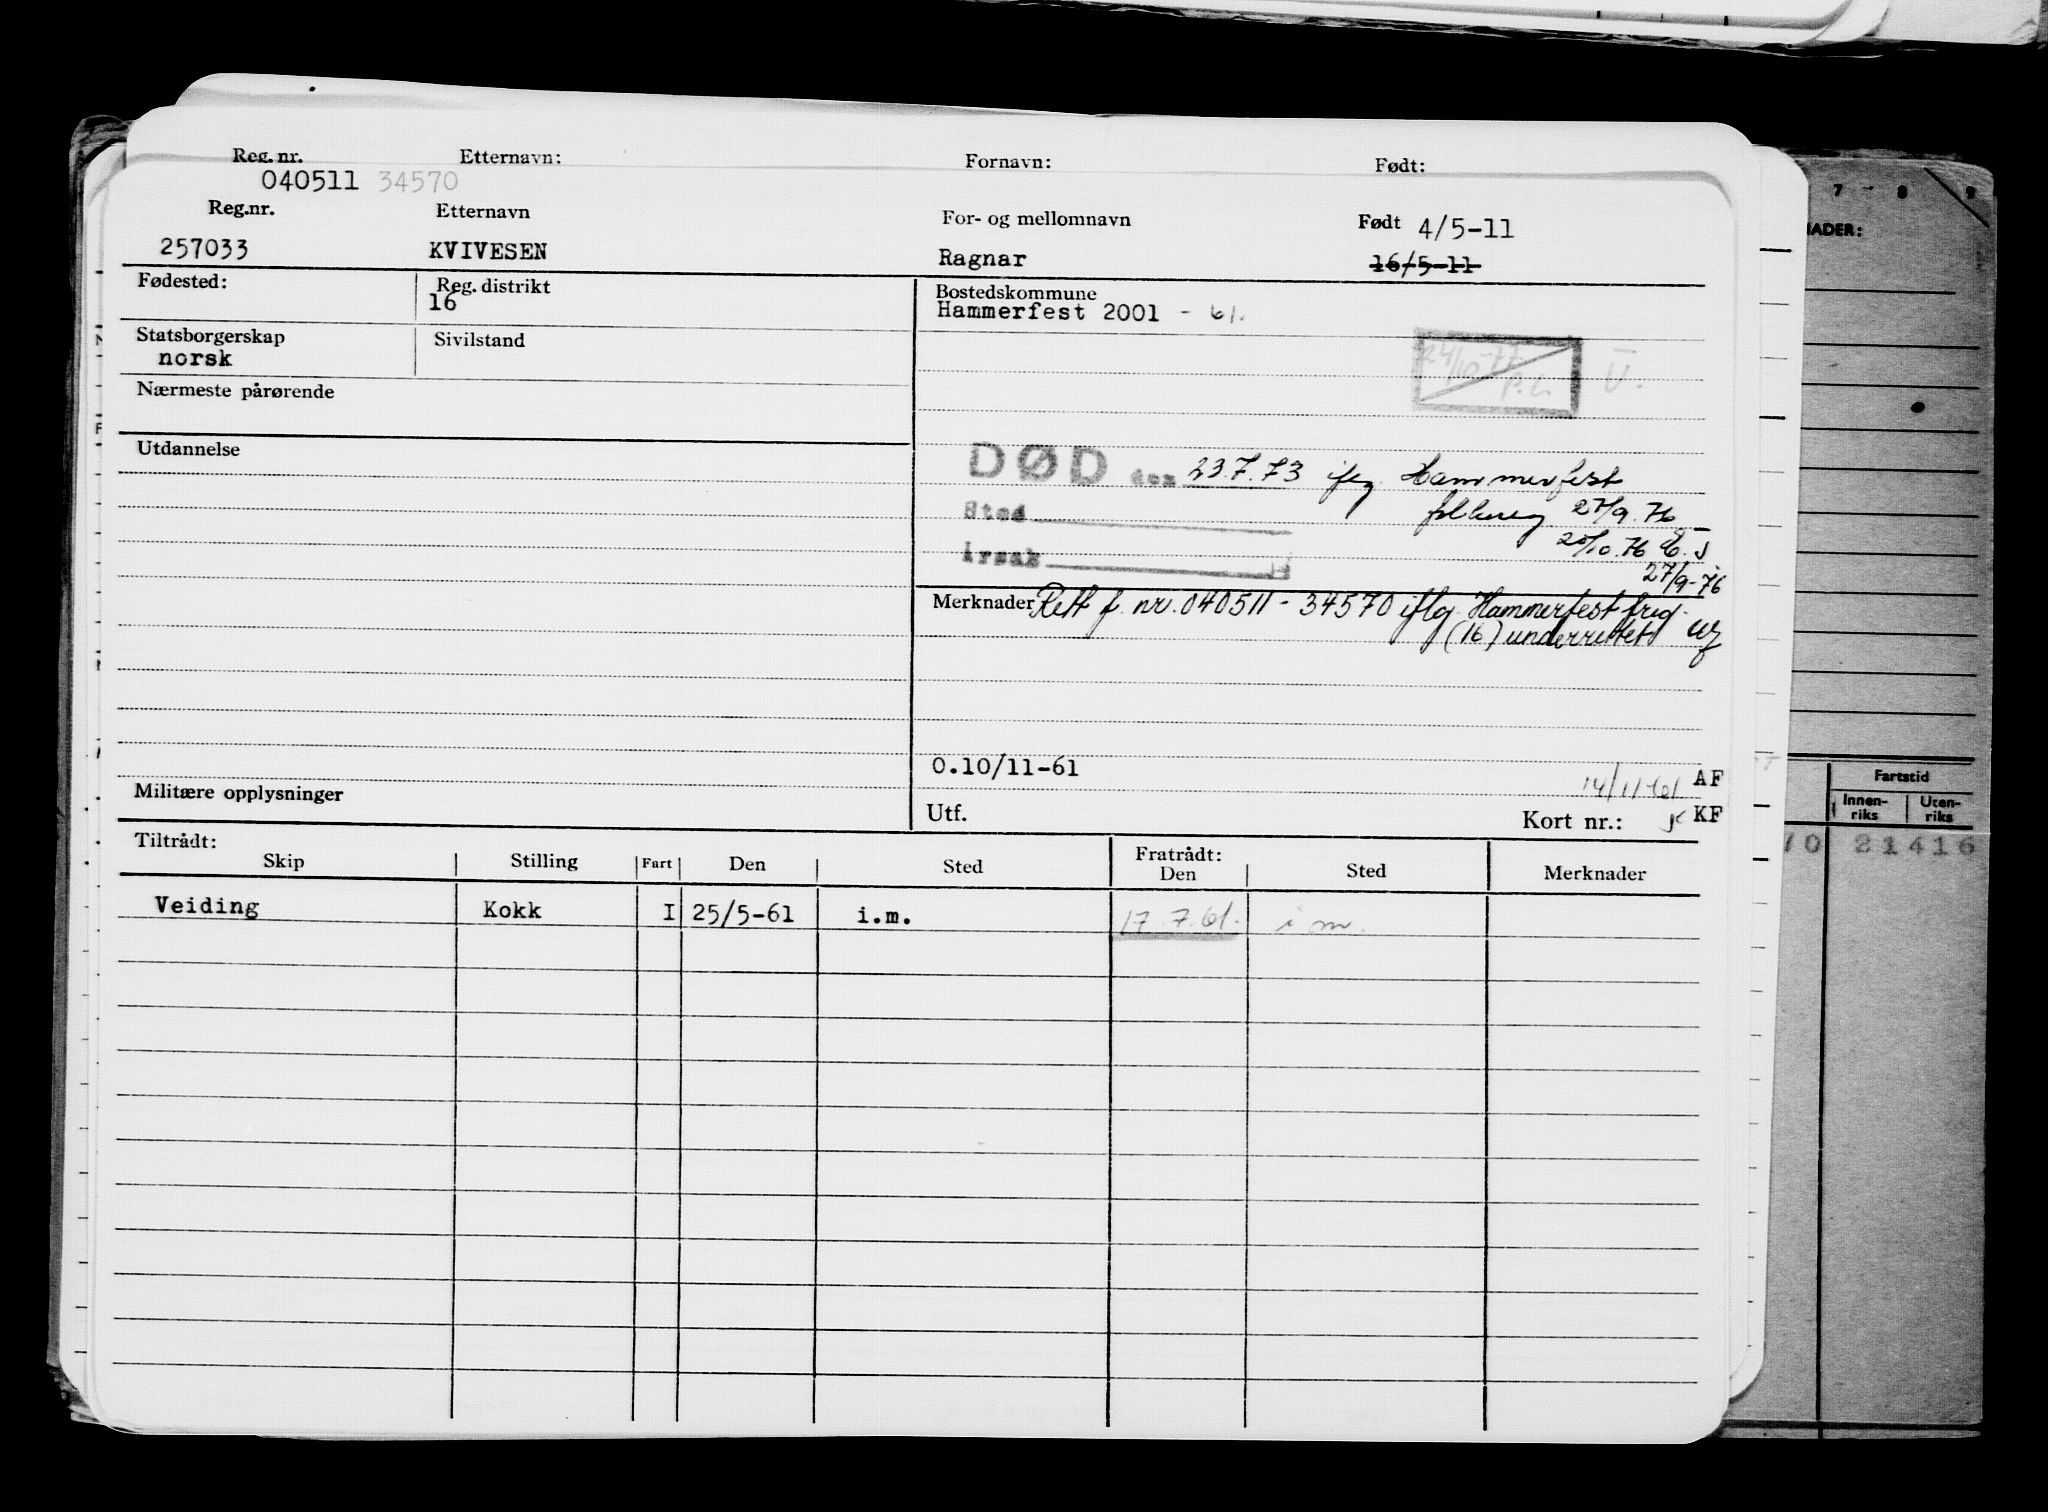 Reg. nr. Etternavn: Fornavn: Født:
040511 34570
Reg.nr. Etternavn For- og mellomnavn Født 4/5-11
257033 KVIVESEN Ragnar 16/5-11
Fødested: Reg. distrikt Bostedskommune
16 Hammerfest 2001 - 61.
Statsborgerskap Sivilstand
norsk
24/10-77
U.
Nærmeste pårørende
Utdannelse
DØD den 23.7.73 iflg. Hammerfest
Sted folkereg 27/9.76
20/10.76
Årsak
27/9-76
Merknader Rett f. nr. 040511 - 34570 iflg. Hammerfest freg.
(16) underrettet
0.10/11-61 14/11-61 AF
Militære opplysninger Utf. Kort nr.: KF
Tiltrådt: Fratrådt:
Skip Stilling Fart Den Sted Den Sted Merknader
Veiding Kokk I 25/5-61 i.m. 17.7.61. i m.
7 8 9
NADER:
Fartstid
Innen-riks Uten-riks
21416